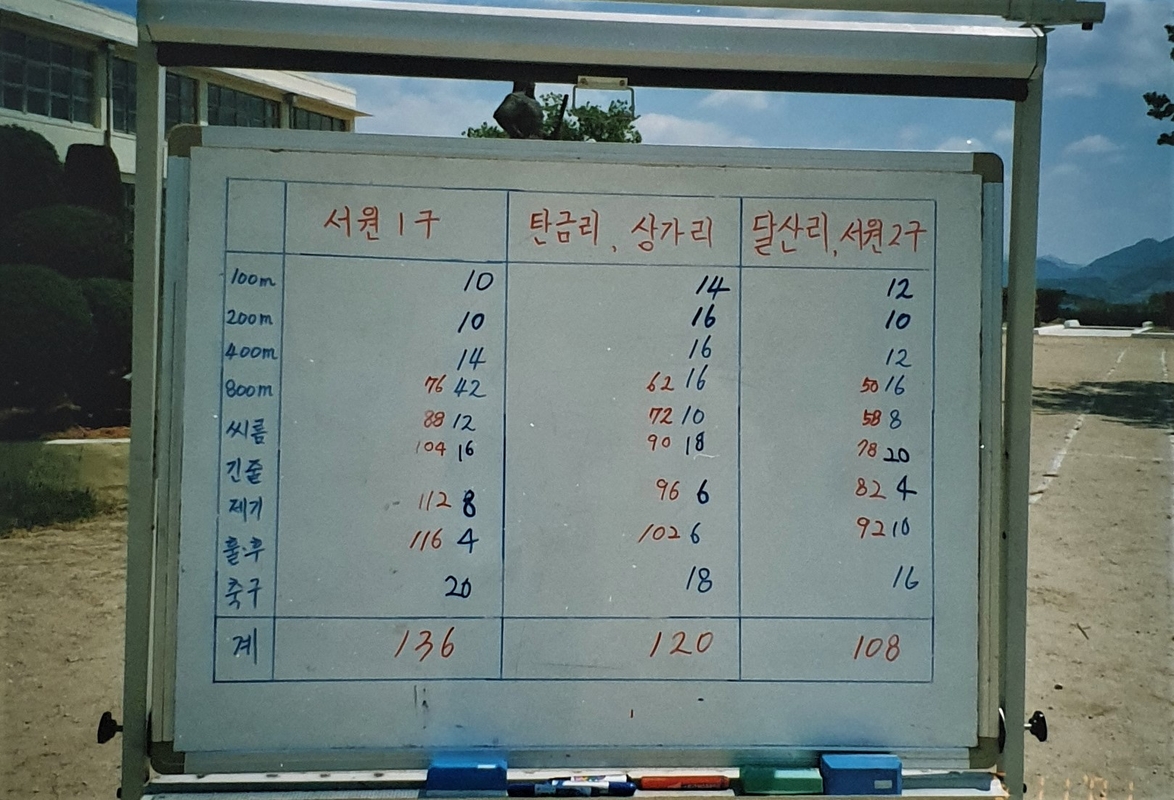 서원1구 탄금리, 상가리 달산리, 서원2구
100m 10 14 12
200m 10 16 10
400m 14 16 12
800m 76 42 62 16 50 16
씨름 88 12 72 10 58 8
긴줄 104 16 90 18 78 20
제기 112 8 96 6 82 4
훌·후 116 4 102 6 92 10
축구 20 18 16
계 136 120 108